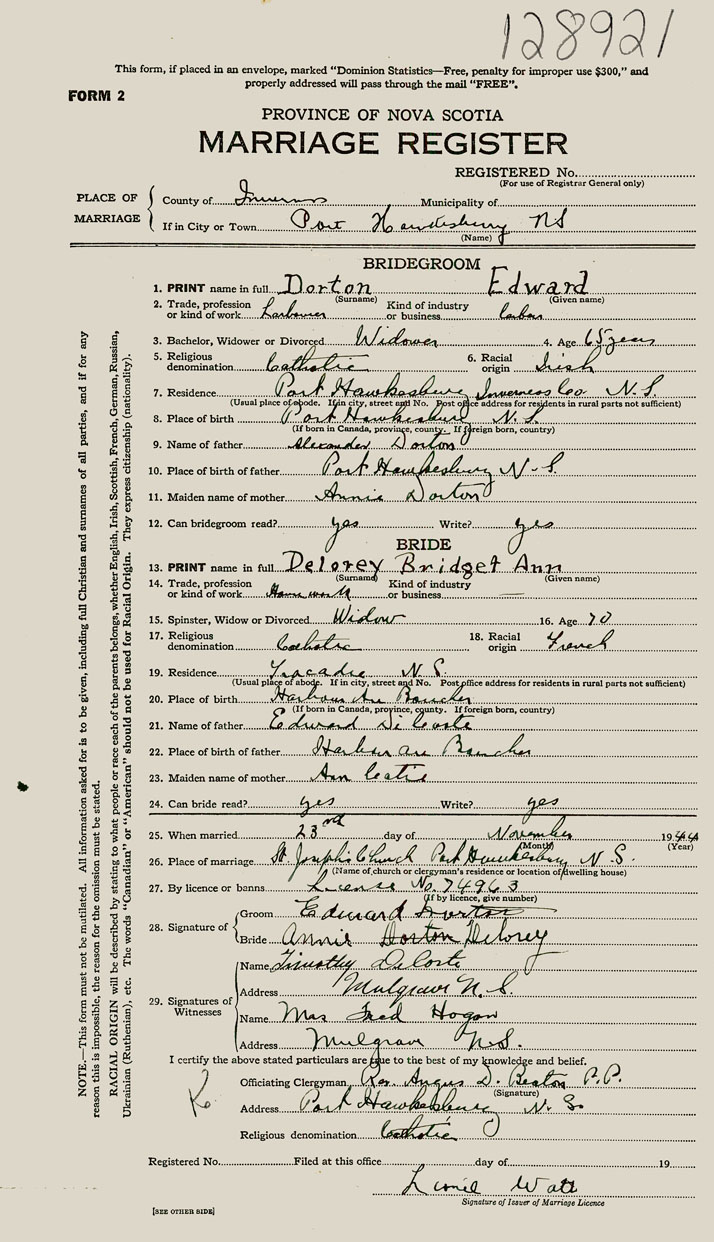 128921
This form, if placed in an envelope, marked "Dominion Statistics—Free, penalty for improper use $300," and
properly addressed will pass through the mail "FREE".
FORM 2
PROVINCE OF NOVA SCOTIA
MARRIAGE REGISTER
REGISTERED No.
(For use of Registrar General only)
PLACE OF MARRIAGE
County of Inverness Municipality of
If in City or Town Port Hawkesbury NS
(Name)
BRIDEGROOM
1. PRINT name in full Dorton Edward
(Surname) (Given name)
2. Trade, profession or kind of work Labourer Kind of industry or business labor
3. Bachelor, Widower or Divorced Widower 4. Age 65 years
5. Religious denomination Catholic 6. Racial origin Irish
7. Residence Port Hawkesbury Inverness Co N.S.
(Usual place of abode. If in city, street and No. Post office address for residents in rural parts not sufficient)
8. Place of birth Port Hawkesbury N.S.
(If born in Canada, province, county. If foreign born, country)
9. Name of father Alexander Dorton
10. Place of birth of father Port Hawkesbury N-S.
11. Maiden name of mother Annie Dorton
12. Can bridegroom read? yes Write? yes
BRIDE
13. PRINT name in full Delorey Bridget Ann
(Surname) (Given name)
14. Trade, profession or kind of work Kind of industry or business —
15. Spinster, Widow or Divorced Widow 16. Age 70
17. Religious denomination Catholic 18. Racial origin French
19. Residence Tracadie N.S.
(Usual place of abode. If in city, street and No. Post office address for residents in rural parts not sufficient)
20. Place of birth Harbour Au Boucher
(If born in Canada, province, county. If foreign born, country)
21. Name of father Edward De Coste
22. Place of birth of father Harbour au Boucher
23. Maiden name of mother Ann
24. Can bride read? yes Write? yes
25. When married 23rd day of November 1944
(Month) (Year)
26. Place of marriage St. Joseph's Church Port Hawkesbury N.S.
(Name of church or clergyman's residence or location of dwelling house)
27. By licence or banns License No. 74963
(If by licence, give number)
28. Signature of
Groom Edward Dorton
Bride Annie Dorton Delorey
29. Signatures of Witnesses
Name Timothy DeCoste
Address Mulgrave N.S.
Name Mrs Fred Hogan
Address Mulgrave N.S.
I certify the above stated particulars are true to the best of my knowledge and belief.
Officiating Clergyman Rev. Angus D. Beaton P.P.
(Signature)
Address Port Hawkesbury N.S.
Religious denomination Catholic
Registered No. Filed at this office day of 19
Lionel Watt
Signature of Issuer of Marriage Licence
[SEE OTHER SIDE]
NOTE.—This form must not be mutilated. All information asked for is to be given, including full Christian and surnames of all parties, and if for any
reason this is impossible, the reason for the omission must be stated.
RACIAL ORIGIN will be described by stating to what people or race each of the parents belongs, whether English, Irish, Scottish, French, German, Russian,
Ukrainian (Ruthenian), etc. The words "Canadian" or "American" should not be used for Racial Origin. They express citizenship (nationality).